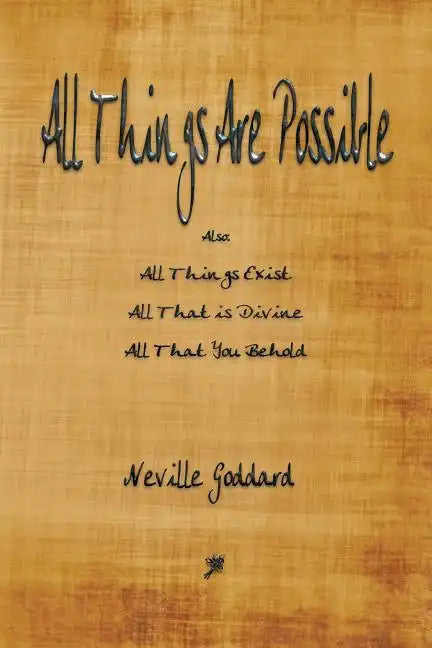 All Things Are Possible
Also:
All Things Exist
All That is Divine
All That You Behold
Neville Goddard